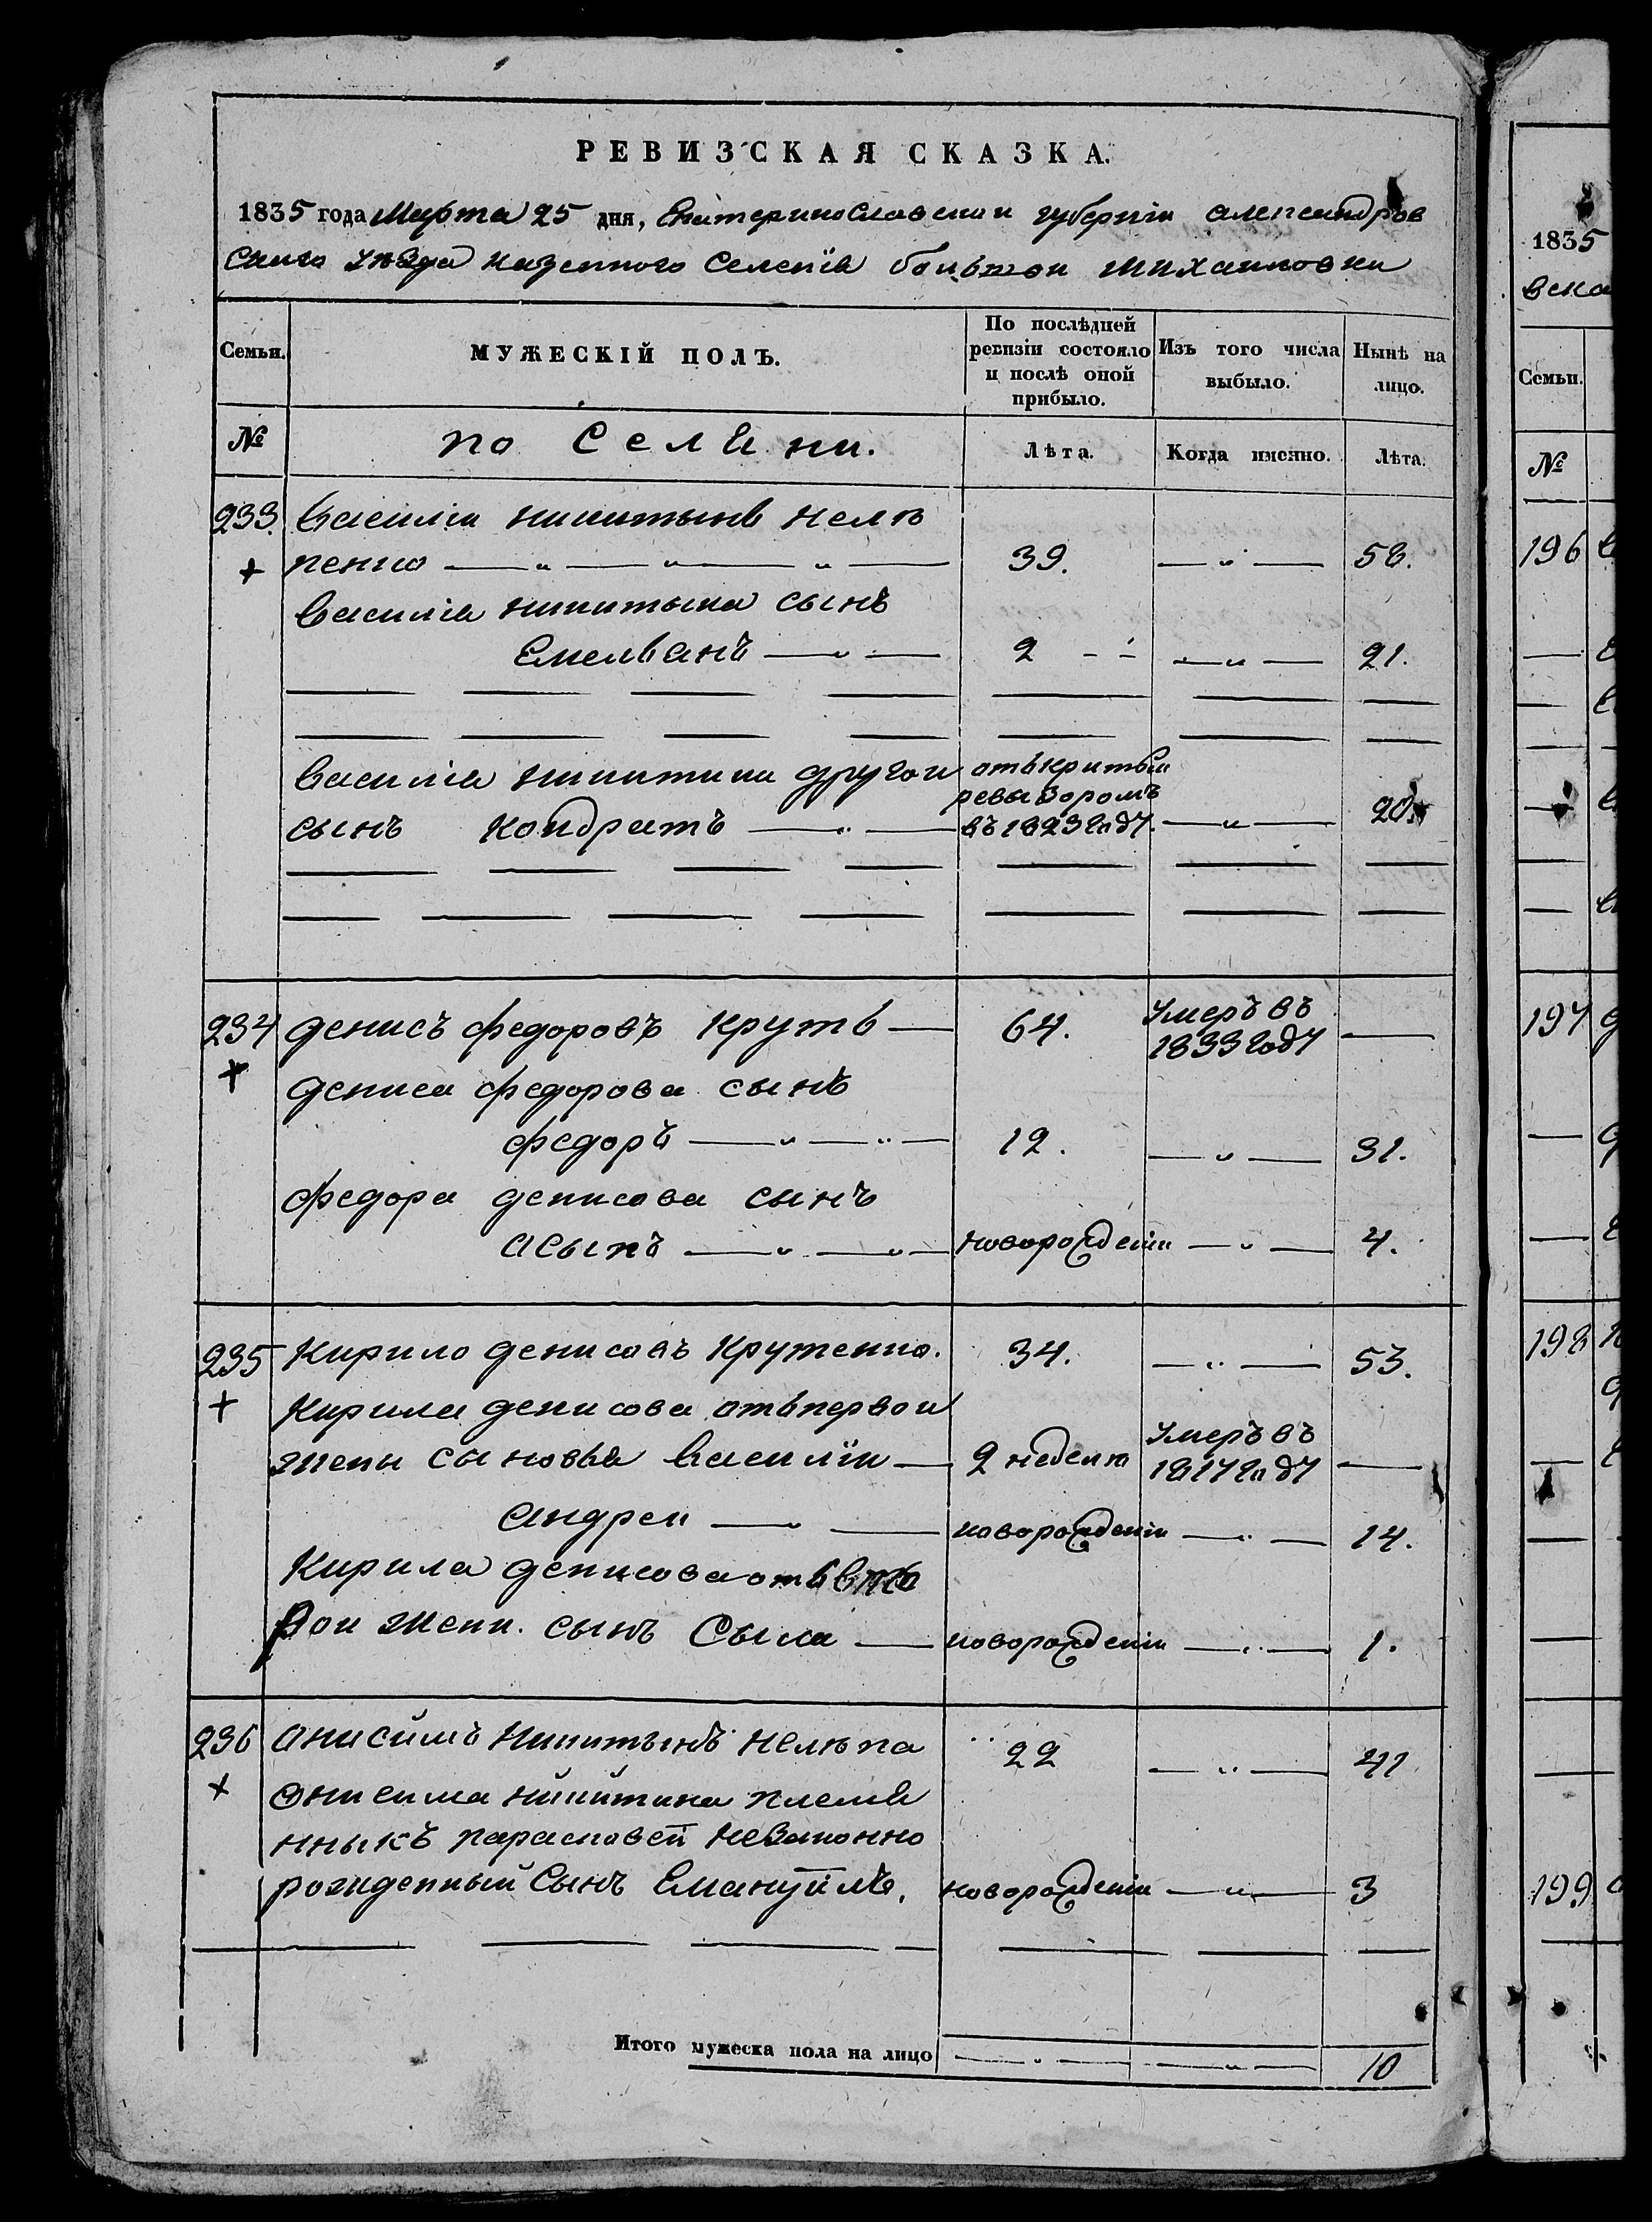 РЕВИЗСКАЯ СКАЗКА.
1835 года Марта 25 дня, Екатеринославскои губернiи александров
скаго уѣзда казенного Селенiя большои михаиловки
Семьи.
МУЖЕСКІЙ ПОЛЪ.
По послѣдней ревизіи состояло и послѣ оной прибыло.
Изъ того числа выбыло.
Ныиѣ на лицо.
№
Лѣта.
Когда именно.
Лѣта.
233. Василіи никитынъ нелѣ
пенко 39. 58.
Василія никитына сынъ
Емельянъ 2 21.
Василія никитина другои отькритыи
ревизоромъ
сынъ Кондратъ въ 1823 году. 20
234 денисъ федоровъ круть 64. Умеръ въ
1833 году
дениса федорова сынъ
федоръ 12. 31.
федора денисова сынъ
асыпъ новорожденіи 4.
235 Кирило денисовъ Крутенко. 34. 53.
Кирила денисова отьпервои
жени сыновья Василiи 2 недели Умеръ въ
1817 году
андреи новорожденіи 14.
Кирила денисова отьвто
рои жени. сынъ Сыла новорожденіи 1.
236 анисимъ Никитынъ нелѣпа 22 41
Онисима никитина племя
нныкъ парасковеи незаконно
рожденный Сынъ Емануилъ. новорожденіи 3
Итого мужеска пола на лицо 10
1835
вска
Семьи.
№
196
197
198
199